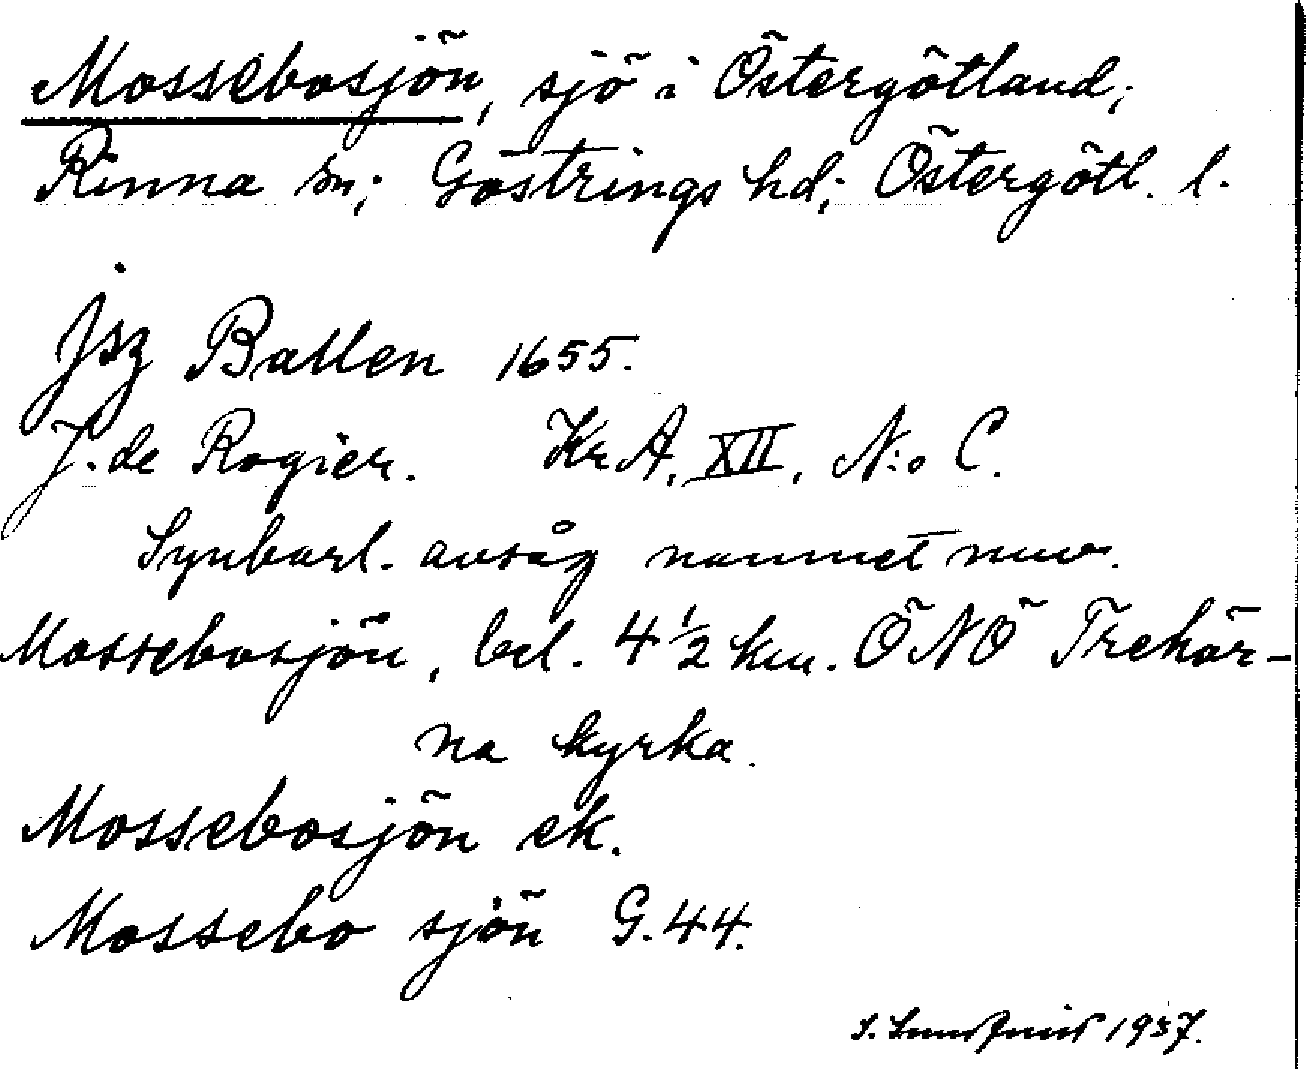 Mossebosjön, sjö i Östergötland;
Rinna sn; Göstrings hd; Östergötl. l.
jsz Ballen 1655.
J. de Rogier. KrA, XII, N:o C.
Synbarl. avsåg namnet nuv.
Mossebosjön, bel. 4 1/2 km. ÖNÖ Trehör-
na kyrka.
Mossebosjön ek.
Mossebo sjön G.44.
1937.